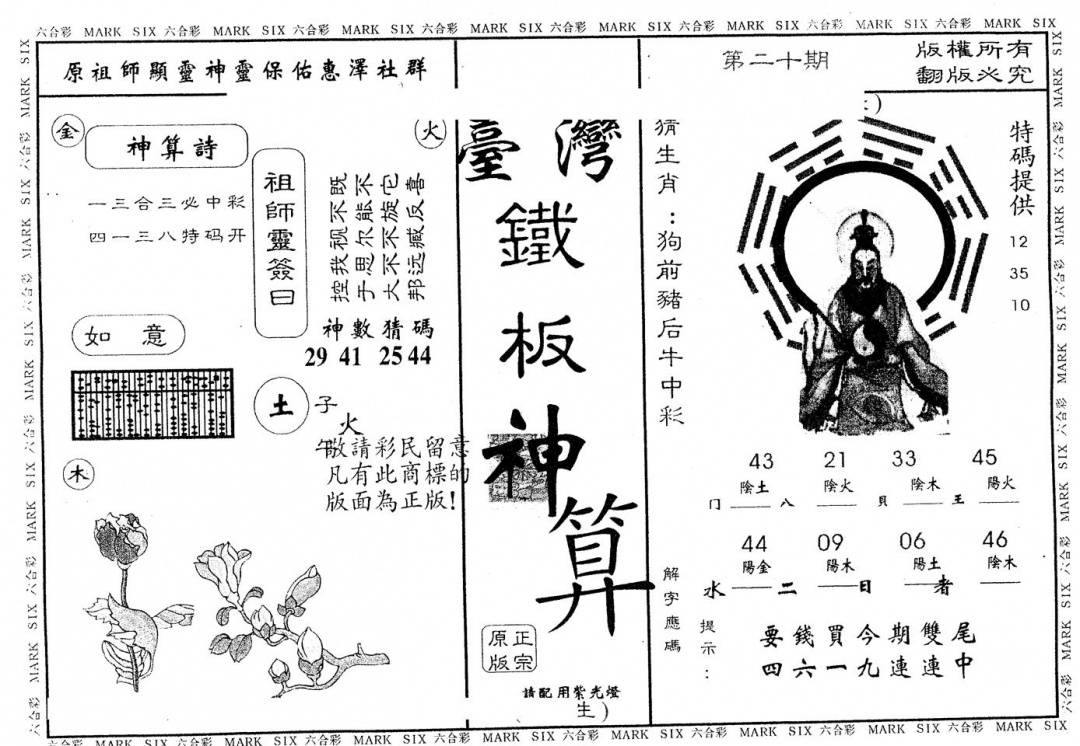 六合彩 MARK SIX 六合彩 MARK SIX 六合彩 MARK SIX 六合彩 MARK SIX 六合彩 MARK SIX 六合彩 MARK SIX 六合彩 MARK SIX 六合彩 MARK SIX
原祖師顯靈神靈保佑惠澤社群
第二十期
版權所有
翻版必究
金
神算詩
一三合三必中彩
四一三八特码开
祖師靈簽曰
火
既不它喜
不能旋反
视尔不臧
我思不远
控于大邦
神數猜碼
29 41 25 44
如意
土
子
火
午
敬請彩民留意
凡有此商標的
版面為正版!
木
臺灣
鐵板神算
正宗
原版
請配用紫光燈
生)
猜生肖:狗前豬后牛中彩
特碼提供
12
35
10
43 21 33 45
陰土 陰火 陰木 陽火
门 八 貝 王
44 09 06 46
陽金 陽木 陽土 陰木
水 二 日 者
解字應碼
提示:
要錢買今期雙尾
四六一九連連中
六合彩 MARK SIX 六合彩 MARK SIX 六合彩 MARK SIX 六合彩 MARK SIX 六合彩 MARK SIX 六合彩 MARK SIX 六合彩 MARK SIX 六合彩 MARK SIX